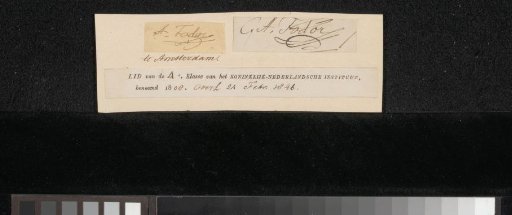 A. Fodor
C. A. Fodor
te Amsterdam
LID van de 4e. Klasse van het KONINKLIJK-NEDERLANDSCHE INSTITUUT,
benoemd 1808. overl. 22 Febr. 1846.